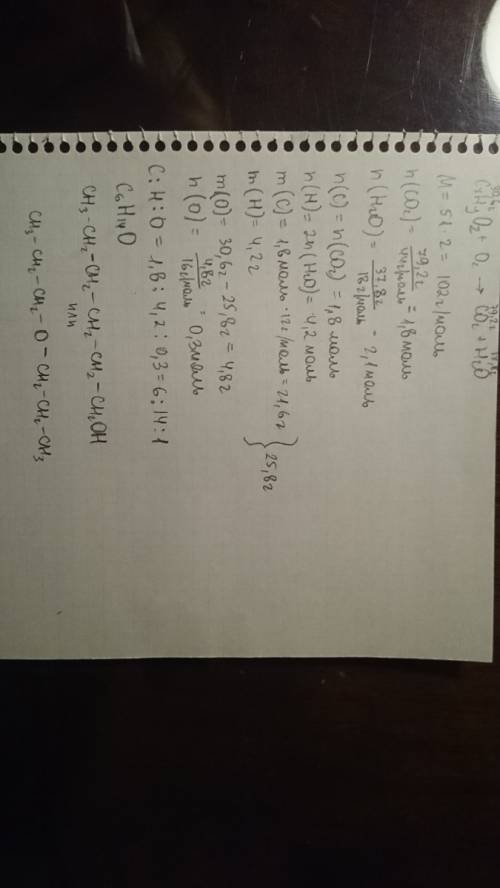 30,6 79,2 37,8
CxHyOz + O₂ → CO₂ + H₂O
M = 51 · 2 = 102 г/моль
n(CO₂) = 79,2г / 44г/моль = 1,8 моль
n(H₂O) = 37,8г / 18г/моль = 2,1 моль
n(C) = n(CO₂) = 1,8 моль
n(H) = 2n(H₂O) = 4,2 моль
m(C) = 1,8 моль · 12г/моль = 21,6г } 25,8г
m(H) = 4,2г
m(O) = 30,6г - 25,8г = 4,8г
n(O) = 4,8г / 16г/моль = 0,3 моль
C : H : O = 1,8 : 4,2 : 0,3 = 6 : 14 : 1
C₆H₁₄O
CH₃-CH₂-CH₂-CH₂-CH₂-CH₂OH
или
CH₃-CH₂-CH₂-O-CH₂-CH₂-CH₃